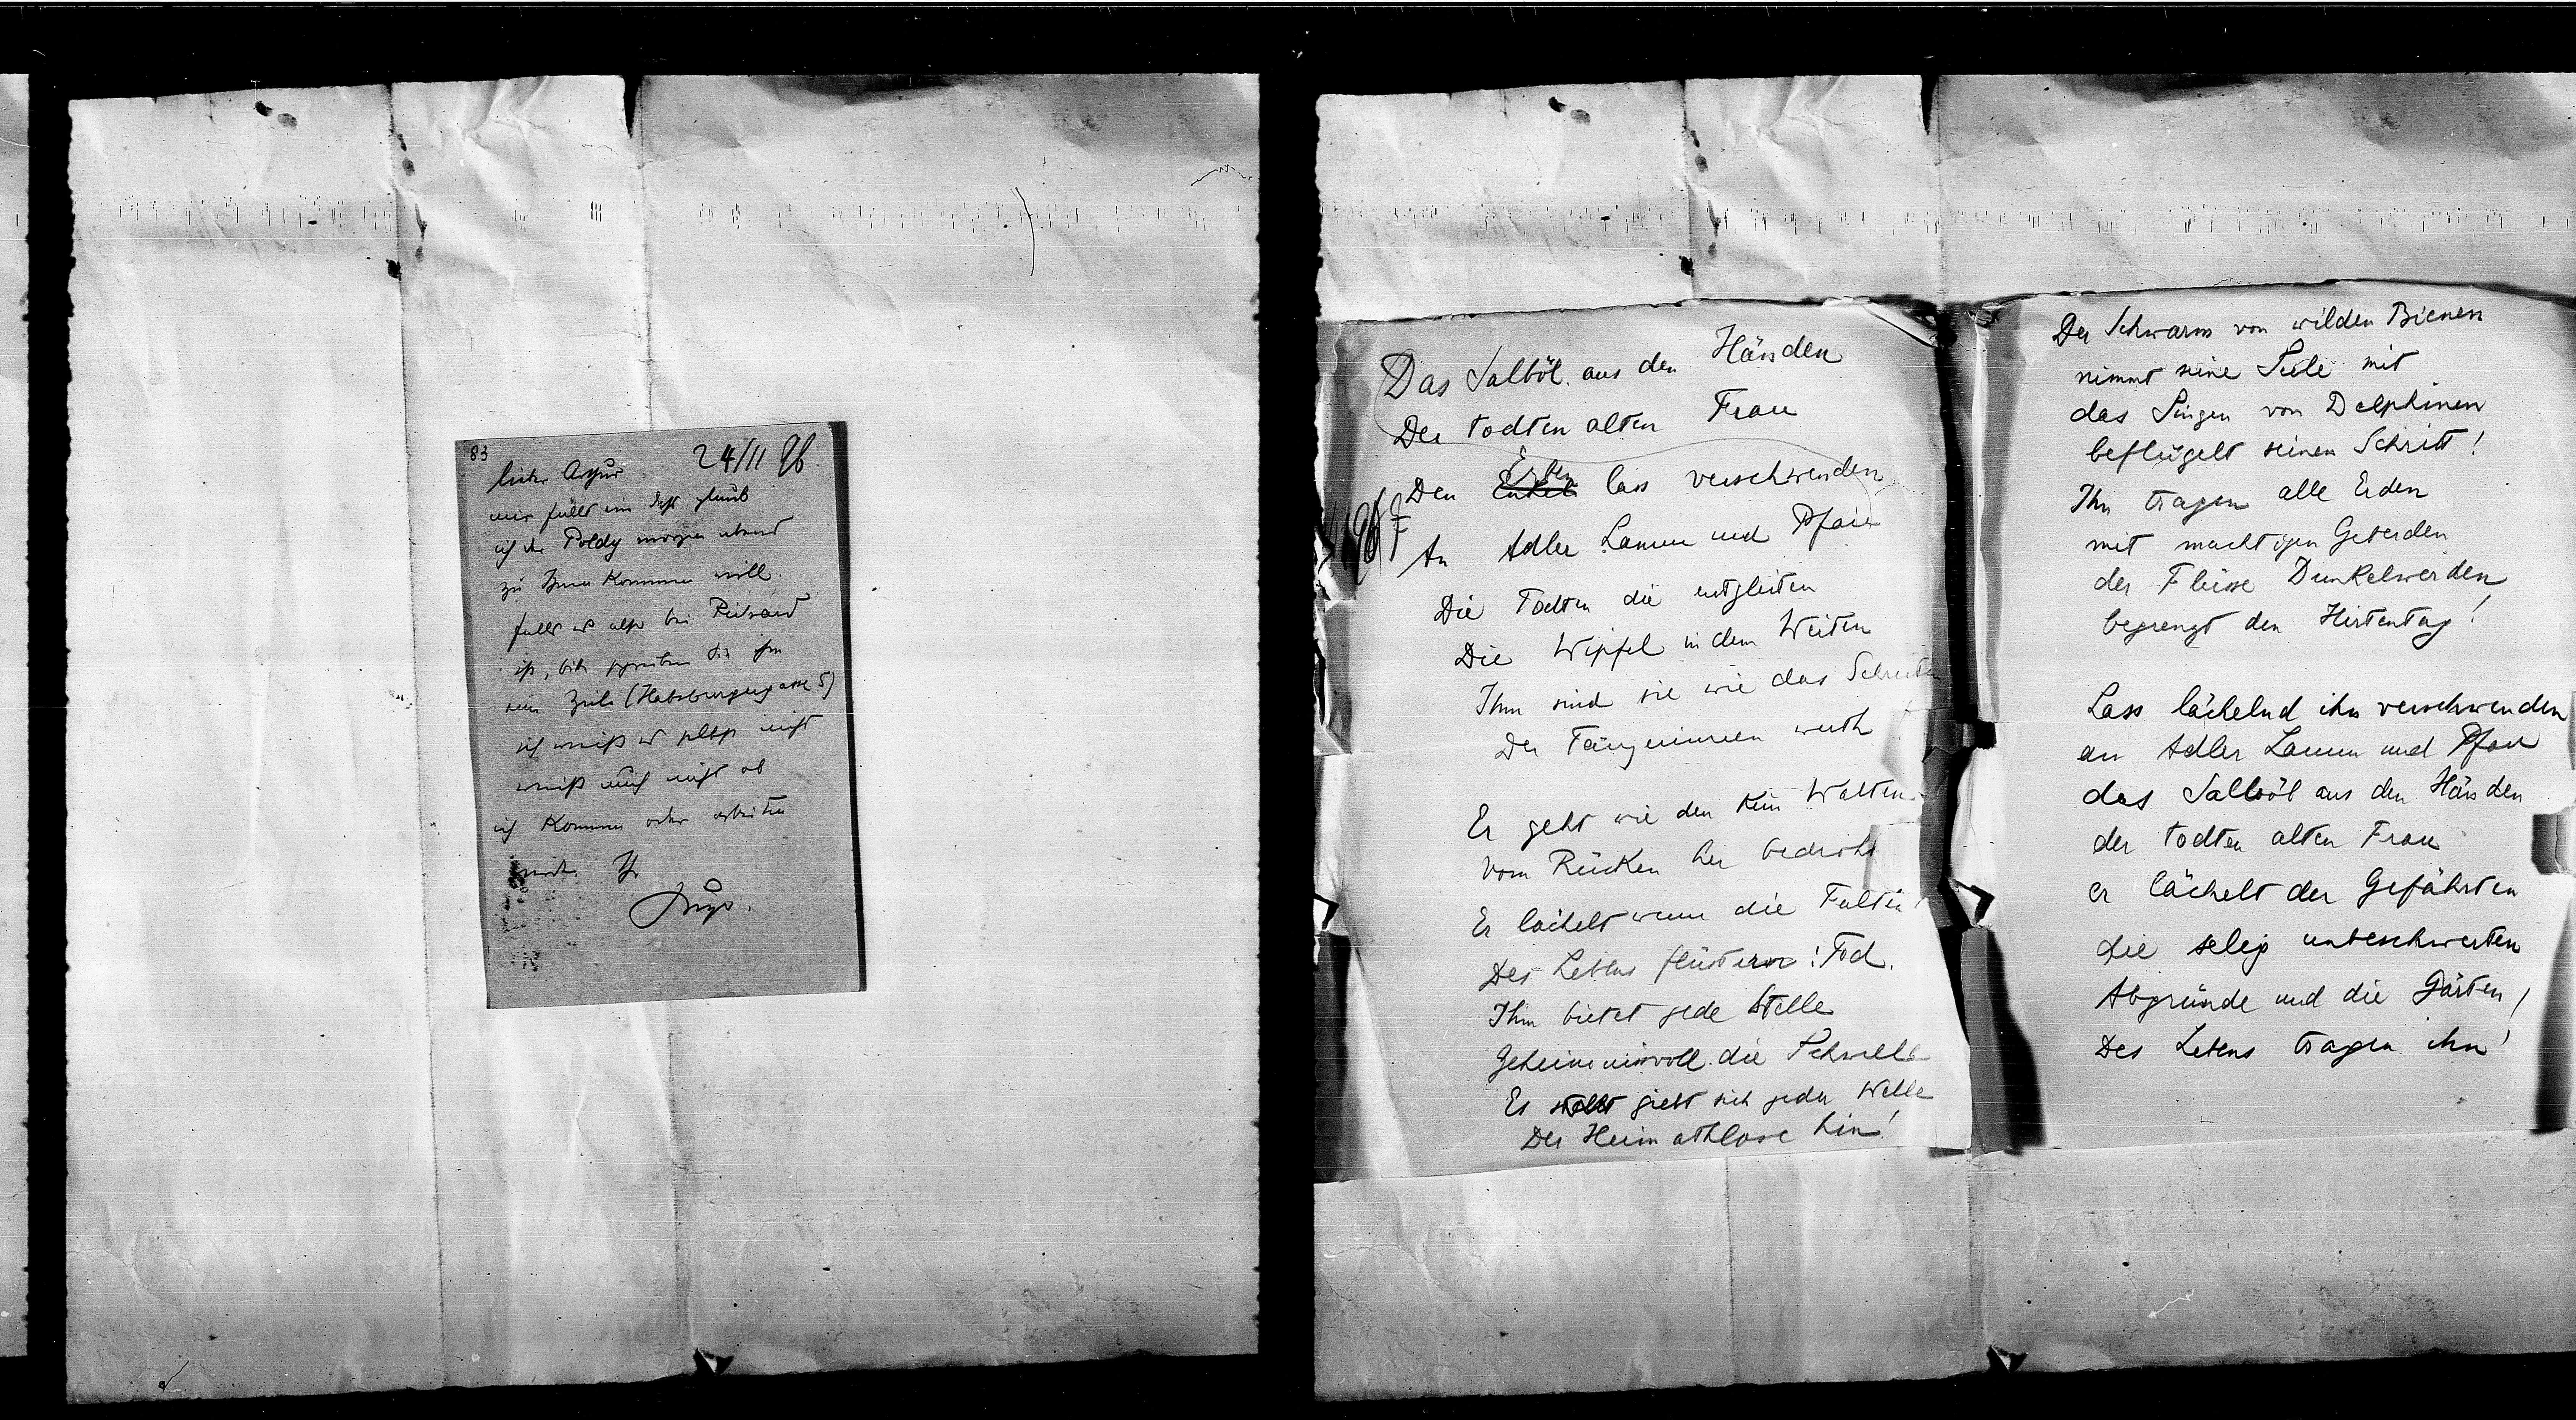 83
24/11 96
lieber Arthur
mir fällt ein dass glaub
ich der Poldy morgen abend
zu Ihnen kommen will.
falls es also bei Richard
ist, bitte schreiben Sie ihm
eine Zeile (Habsburgergasse 5)
ich weiß es selbst nicht
weiß auch nicht ob
ich komme oder arbeiten
werde. Ihr
Hugo.
Das Salböl aus den Händen
Der todten alten Frau
Den Enkel Erben lass verschwenden
An Adler Lamm und Pfau
Die Todten die entgleiten
Die Wipfel in dem Weiten
Ihm sind sie wie das Schreiten
Der Tänzerinnen werth
Er geht wie den kein Walten
Vom Rücken her bedroht
Er lächelt wenn die Falten
Des Lebens flüstern: Tod.
Ihm bietet jede Stelle
Geheimnisvoll die Schwelle
Es giebt sich jeder Welle
Der Heimathlose hin!
Der Schwarm von wilden Bienen
nimmt seine Seele mit
das Singen von Delphinen
beflügelt seinen Schritt!
Ihn tragen alle Erden
mit mächtigen Geberden
der Flüsse Dunkelwerden
begrenzt den Hirtentag!
Lass lächelnd ihn verschwenden
an Adler Lamm und Pfau
das Salböl aus den Händen
der todten alten Frau
er lächelt der Gefährten
die selig unbeschwerten
Abgründe und die Gärten
Des Lebens tragen ihn!